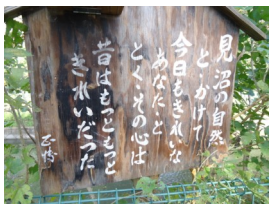 見沼の自然
と・かけて
今日もきれいな
あなた・と
とく・その心は
昔はもっともっと
きれいだった